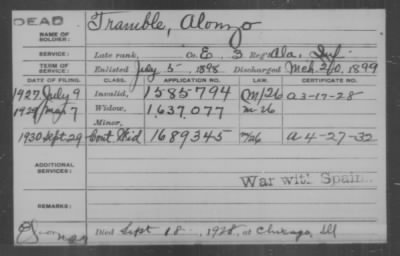 DEAD
NAME OF SOLDIER: Tramble, Alonzo
SERVICE: Late rank, Co. E, 3 Reg't Ala, Inf.
TERM OF SERVICE: Enlisted July 5, 1898 Discharged Mch 20, 1899
DATE OF FILING. CLASS. APPLICATION NO. LAW. CERTIFICATE NO.
1927 July 9 Invalid, 1585794 M/26 a 3-17-28
1929 Mar 7 Widow, 1,637,077 M-26
Minor,
1930 Sept 29 Cont. Wid 1689345 M26 a-4-27-32
ADDITIONAL SERVICES:
War with Spain
REMARKS:
Died Sept 18, 1928, at Chicago, Ill